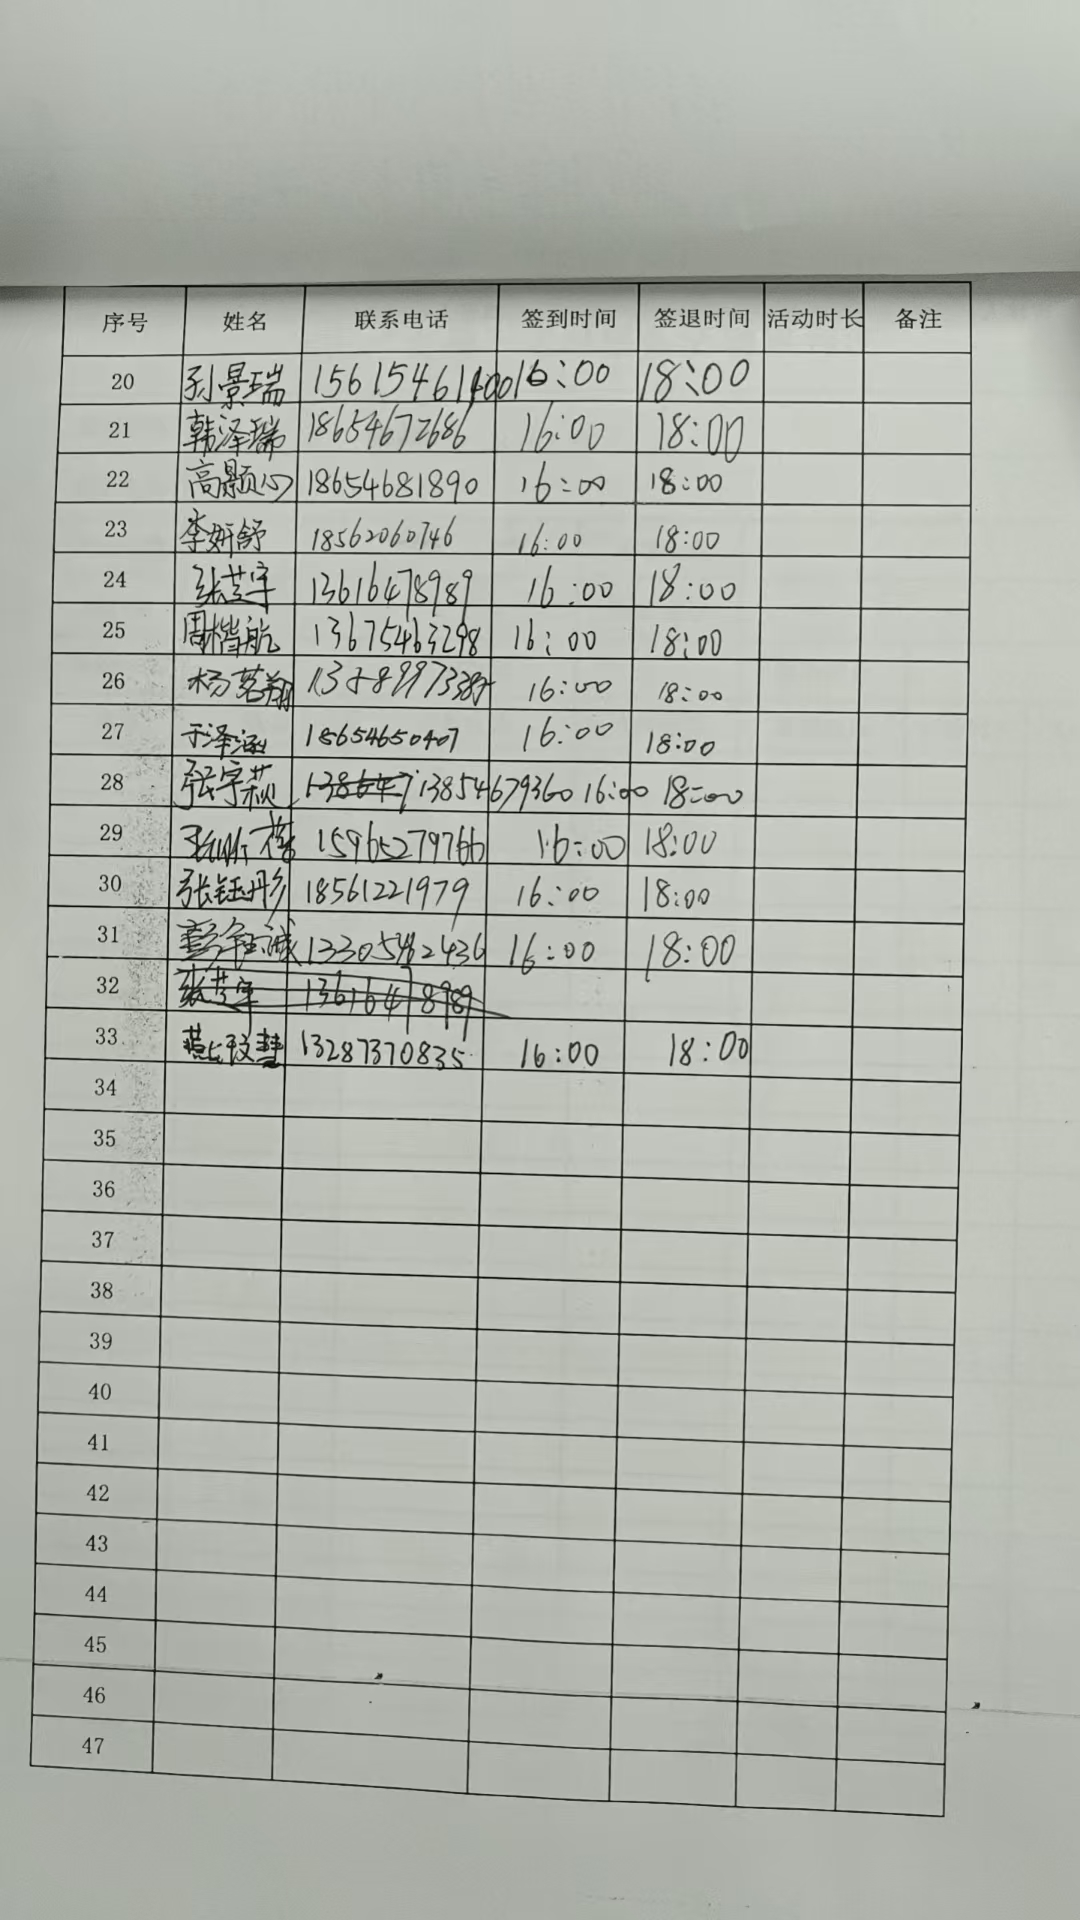 序号 姓名 联系电话 签到时间 签退时间 活动时长 备注
20 孙景瑞 15615461400 16:00 18:00
21 韩泽瑞 18654672686 16:00 18:00
22 高颢心 18654681890 16:00 18:00
23 李妍舒 18562060746 16:00 18:00
24 张芝宇 13616478989 16:00 18:00
25 周楷航 13675463298 16:00 18:00
26 杨茗翔 16:00 18:00
27 于泽涵 18654650407 16:00 18:00
28 张宇菘 13854679360 16:00 18:00
29 15965279766 16:00 18:00
30 张钰彤 18561221979 16:00 18:00
31 13305462436 16:00 18:00
32 张芝宇 13616478989
33 13287370835 16:00 18:00
34
35
36
37
38
39
40
41
42
43
44
45
46
47